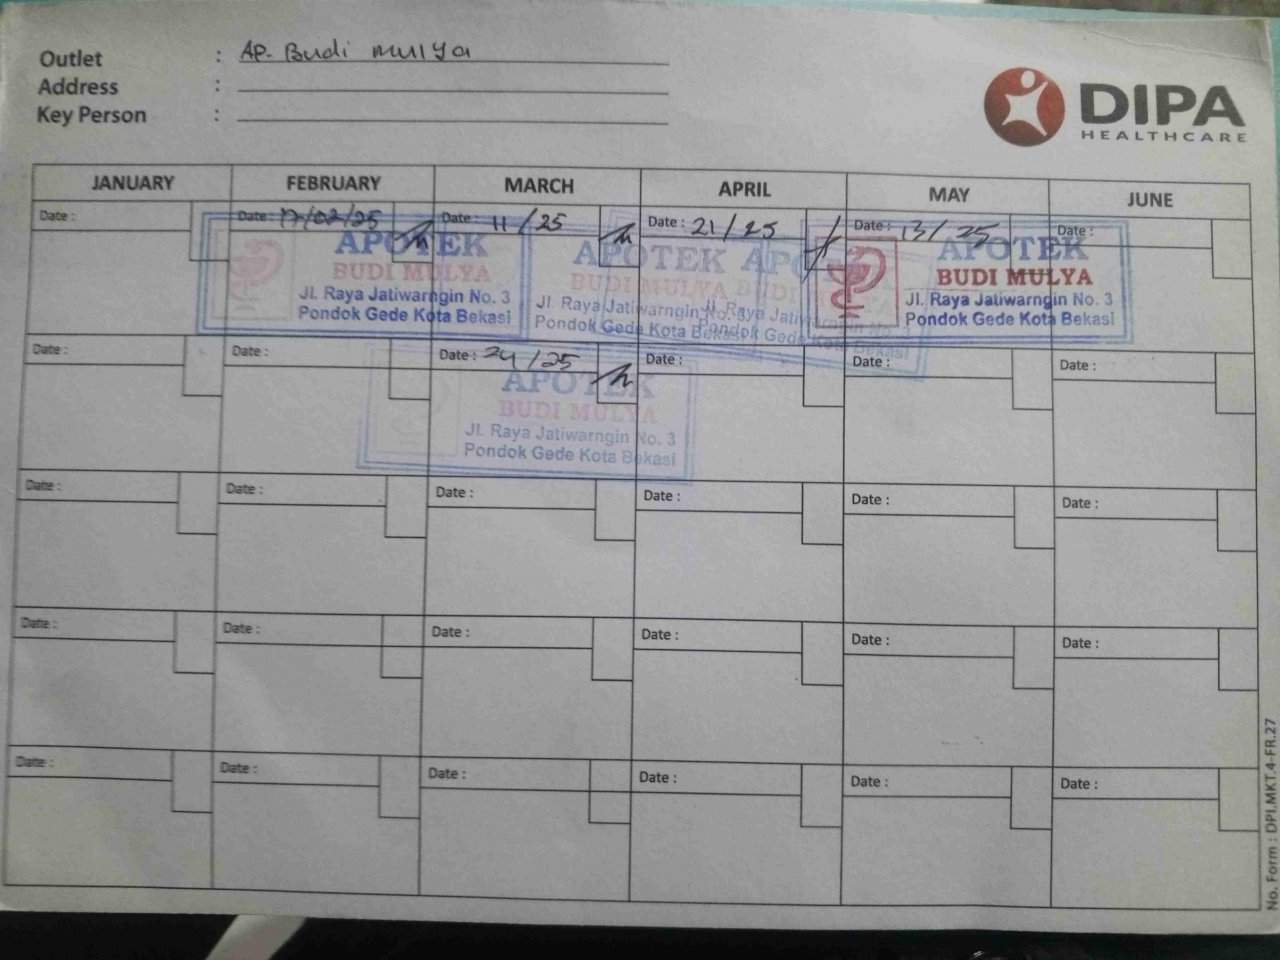 Outlet : AP. Budi mulya
Address :
Key Person :
DIPA
HEALTHCARE
JANUARY FEBRUARY MARCH APRIL MAY JUNE
Date : Date : 17/02/25 Date : 11/25 Date : 21/25 Date : 13/25 Date :
APOTEK
BUDI MULYA
Jl. Raya Jatiwarngin No. 3
Pondok Gede Kota Bekasi
APOTEK
BUDI MULYA
Jl. Raya Jatiwarngin No. 3
Pondok Gede Kota Bekasi
APOTEK
BUDI MULYA
Jl. Raya Jatiwarngin No. 3
Pondok Gede Kota Bekasi
APOTEK
BUDI MULYA
Jl. Raya Jatiwarngin No. 3
Pondok Gede Kota Bekasi
Date : Date : Date : 24/25 Date : Date : Date :
APOTEK
BUDI MULYA
Jl. Raya Jatiwarngin No. 3
Pondok Gede Kota Bekasi
Date : Date : Date : Date : Date : Date :
Date : Date : Date : Date : Date : Date :
Date : Date : Date : Date : Date : Date :
No. Form : DPI.MKT.4-FR.27